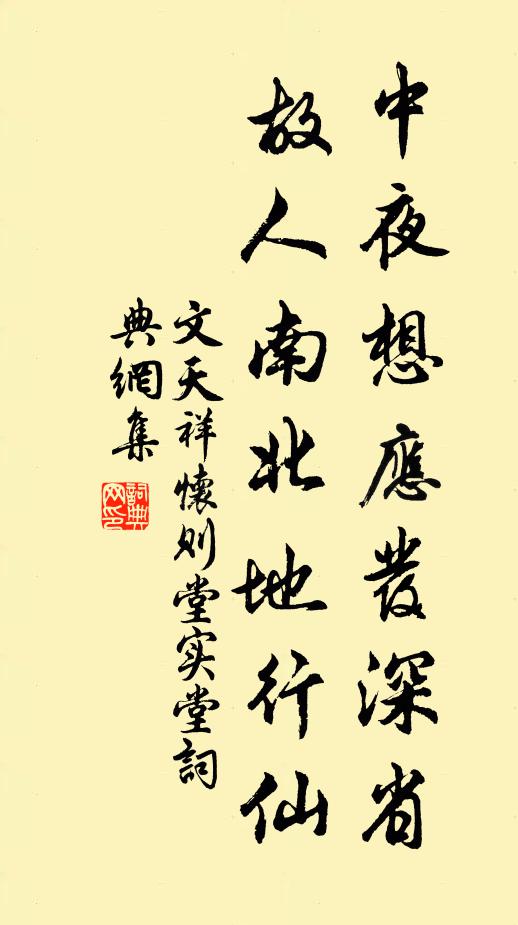 中夜想應發深省
故人南北地行仙
文天祥懷则堂实堂詞
典網集
詞典
网印